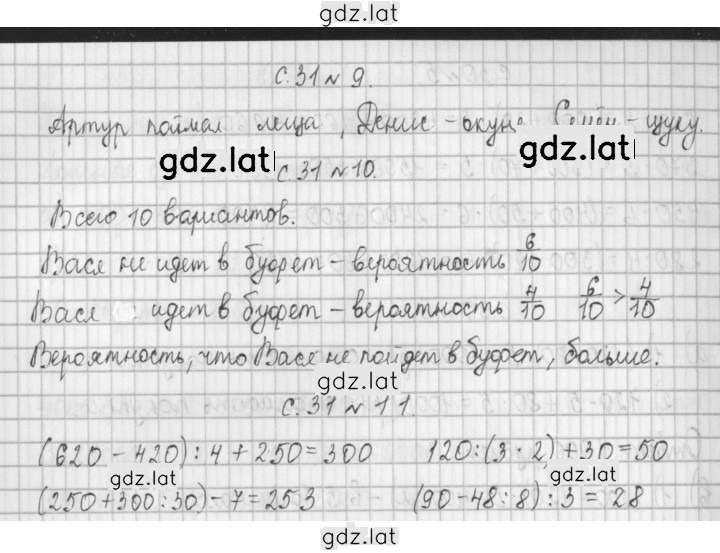 gdz.lat
С.31 № 9.
Артур поймал леща, Денис - окуня, Семён - щуку.
gdz.lat gdz.lat
С.31 № 10.
Всего 10 вариантов.
Вася не идет в буфет - вероятность 6/10
Вася идет в буфет - вероятность 4/10 6/10 > 4/10
Вероятность, что Вася не пойдет в буфет, больше.
gdz.lat
С.31 № 11.
(620 - 420) : 4 + 250 = 300 120 : (3 · 2) + 30 = 50
gdz.lat gdz.lat
(250 + 300 : 30) - 7 = 253 (90 - 48 : 8) : 3 = 28
gdz.lat